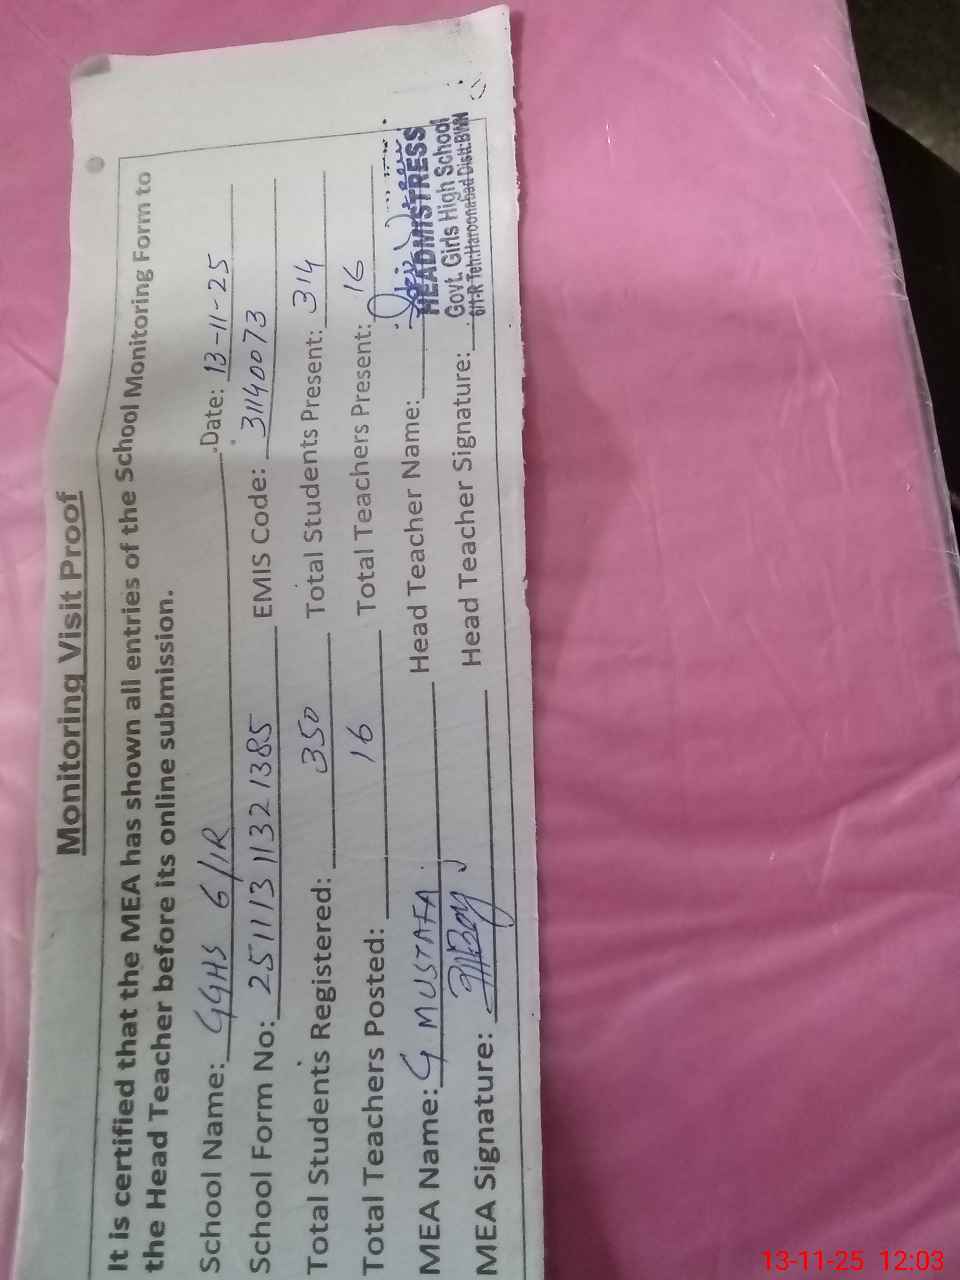 Monitoring Visit Proof
It is certified that the MEA has shown all entries of the School Monitoring Form to
the Head Teacher before its online submission.
School Name: GGHS 6/1R Date: 13-11-25
School Form No: 251113 1132 1385 EMIS Code: 31140073
Total Students Registered: 350 Total Students Present: 314
Total Teachers Posted: 16 Total Teachers Present: 16
MEA Name: G MUSTAFA Head Teacher Name:
MEA Signature: Head Teacher Signature:
HEADMISTRESS
Govt. Girls High School
6/1-R Teh:Haroonabad Distt:BWN
13-11-25 12:03